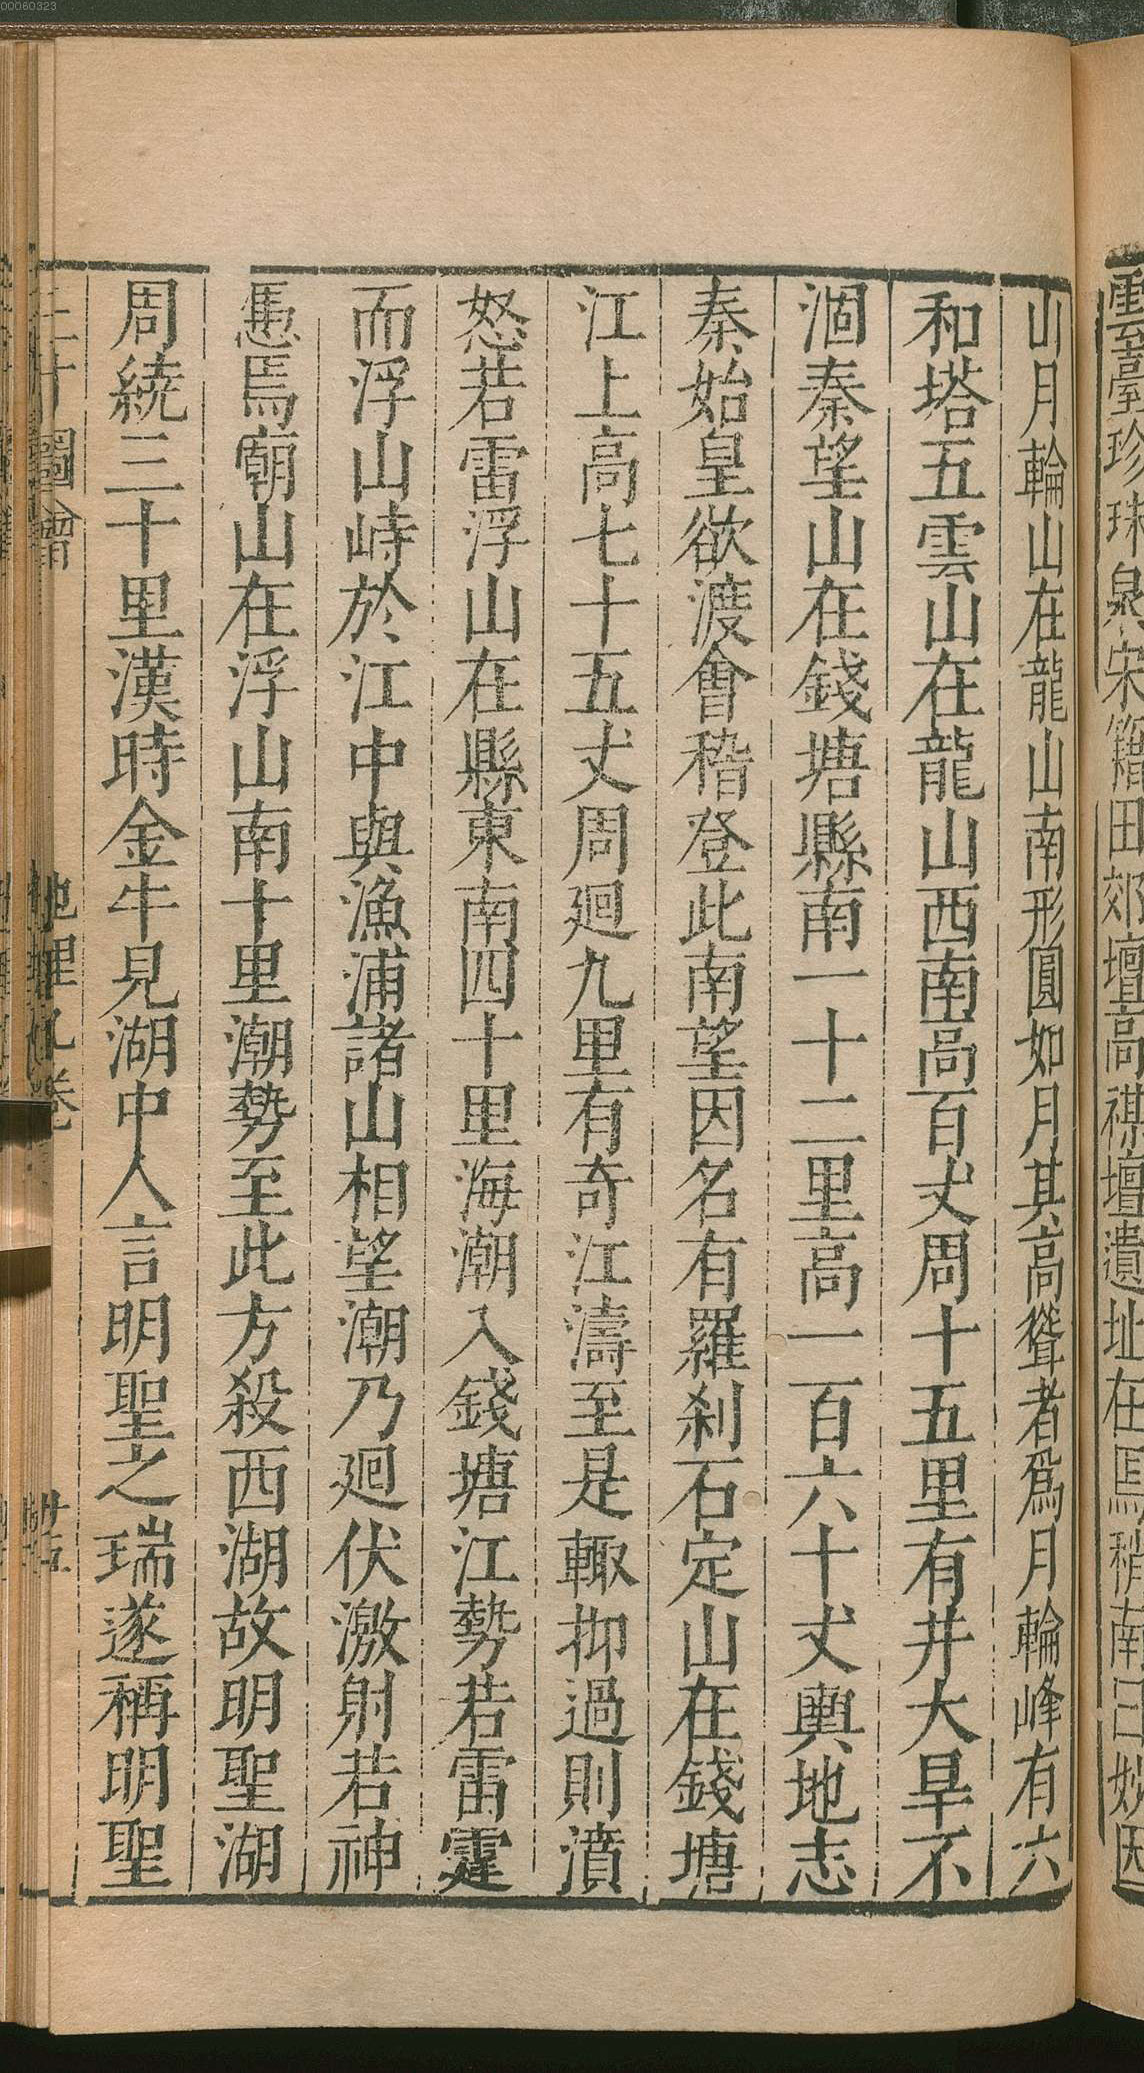 00060323
靈臺珍珠泉宋籍田郊壇高禖壇遺址在焉稍南曰妙因
山月輪山在龍山南形圓如月其高聳者爲月輪峰有六
和塔五雲山在龍山西南高百丈周十五里有井大旱不
涸秦望山在錢塘縣南一十二里高一百六十丈輿地志
秦始皇欲渡會稽登此南望因名有羅刹石定山在錢塘
江上高七十五丈周廻九里有奇江濤至是輙抑過則濆
怒若雷浮山在縣東南四十里海潮入錢塘江勢若雷霆
而浮山峙於江中與漁浦諸山相望潮乃廻伏激射若神
馮焉廟山在浮山南十里潮勢至此方殺西湖故明聖湖
周繞三十里漢時金牛見湖中人言明聖之瑞遂稱明聖
三才圖會 地理九卷 廿五